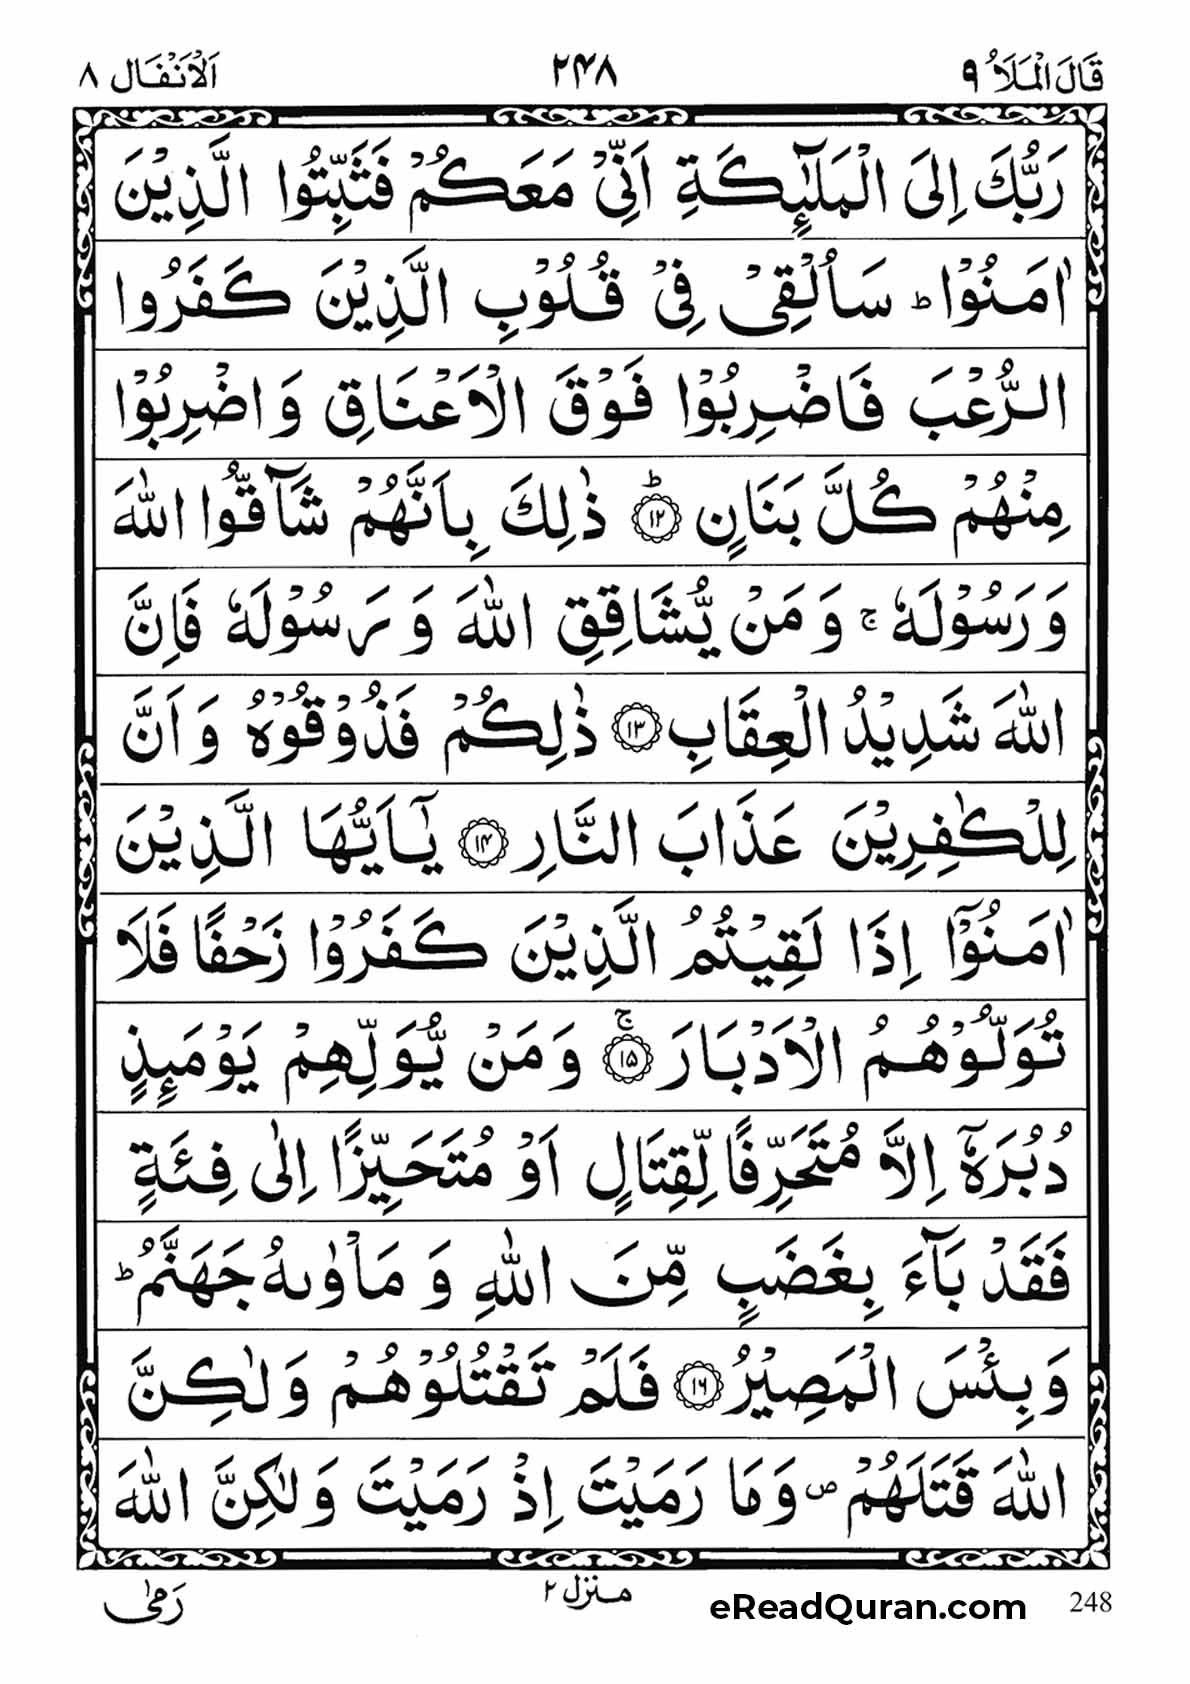 قَالَ الْمَلَاُ ٩ ٢٤٨ اَلْاَنْفَال ٨
رَبُّكَ اِلَى الْمَلٰٓئِكَةِ اَنِّىْ مَعَكُمْ فَثَبِّتُوا الَّذِيْنَ
اٰمَنُوْا ؕ سَاُلْقِىْ فِىْ قُلُوْبِ الَّذِيْنَ كَفَرُوا
الرُّعْبَ فَاضْرِبُوْا فَوْقَ الْاَعْنَاقِ وَاضْرِبُوْا
مِنْهُمْ كُلَّ بَنَانٍ ؕ ﴿١٢﴾ ذٰلِكَ بِاَنَّهُمْ شَآقُّوا اللّٰهَ
وَرَسُوْلَهٗ ۚ وَمَنْ يُّشَاقِقِ اللّٰهَ وَرَسُوْلَهٗ فَاِنَّ
اللّٰهَ شَدِيْدُ الْعِقَابِ ﴿١٣﴾ ذٰلِكُمْ فَذُوْقُوْهُ وَاَنَّ
لِلْكٰفِرِيْنَ عَذَابَ النَّارِ ﴿١٤﴾ يٰۤاَيُّهَا الَّذِيْنَ
اٰمَنُوْۤا اِذَا لَقِيْتُمُ الَّذِيْنَ كَفَرُوْا زَحْفًا فَلَا
تُوَلُّوْهُمُ الْاَدْبَارَ ۚ ﴿١٥﴾ وَمَنْ يُّوَلِّهِمْ يَوْمَئِذٍ
دُبُرَهٗۤ اِلَّا مُتَحَرِّفًا لِّقِتَالٍ اَوْ مُتَحَيِّزًا اِلٰى فِئَةٍ
فَقَدْ بَآءَ بِغَضَبٍ مِّنَ اللّٰهِ وَمَاْوٰىهُ جَهَنَّمُ ؕ
وَبِئْسَ الْمَصِيْرُ ﴿١٦﴾ فَلَمْ تَقْتُلُوْهُمْ وَلٰكِنَّ
اللّٰهَ قَتَلَهُمْ ۖ وَمَا رَمَيْتَ اِذْ رَمَيْتَ وَلٰكِنَّ اللّٰهَ
منزل ٢ رَمٰى
eReadQuran.com 248